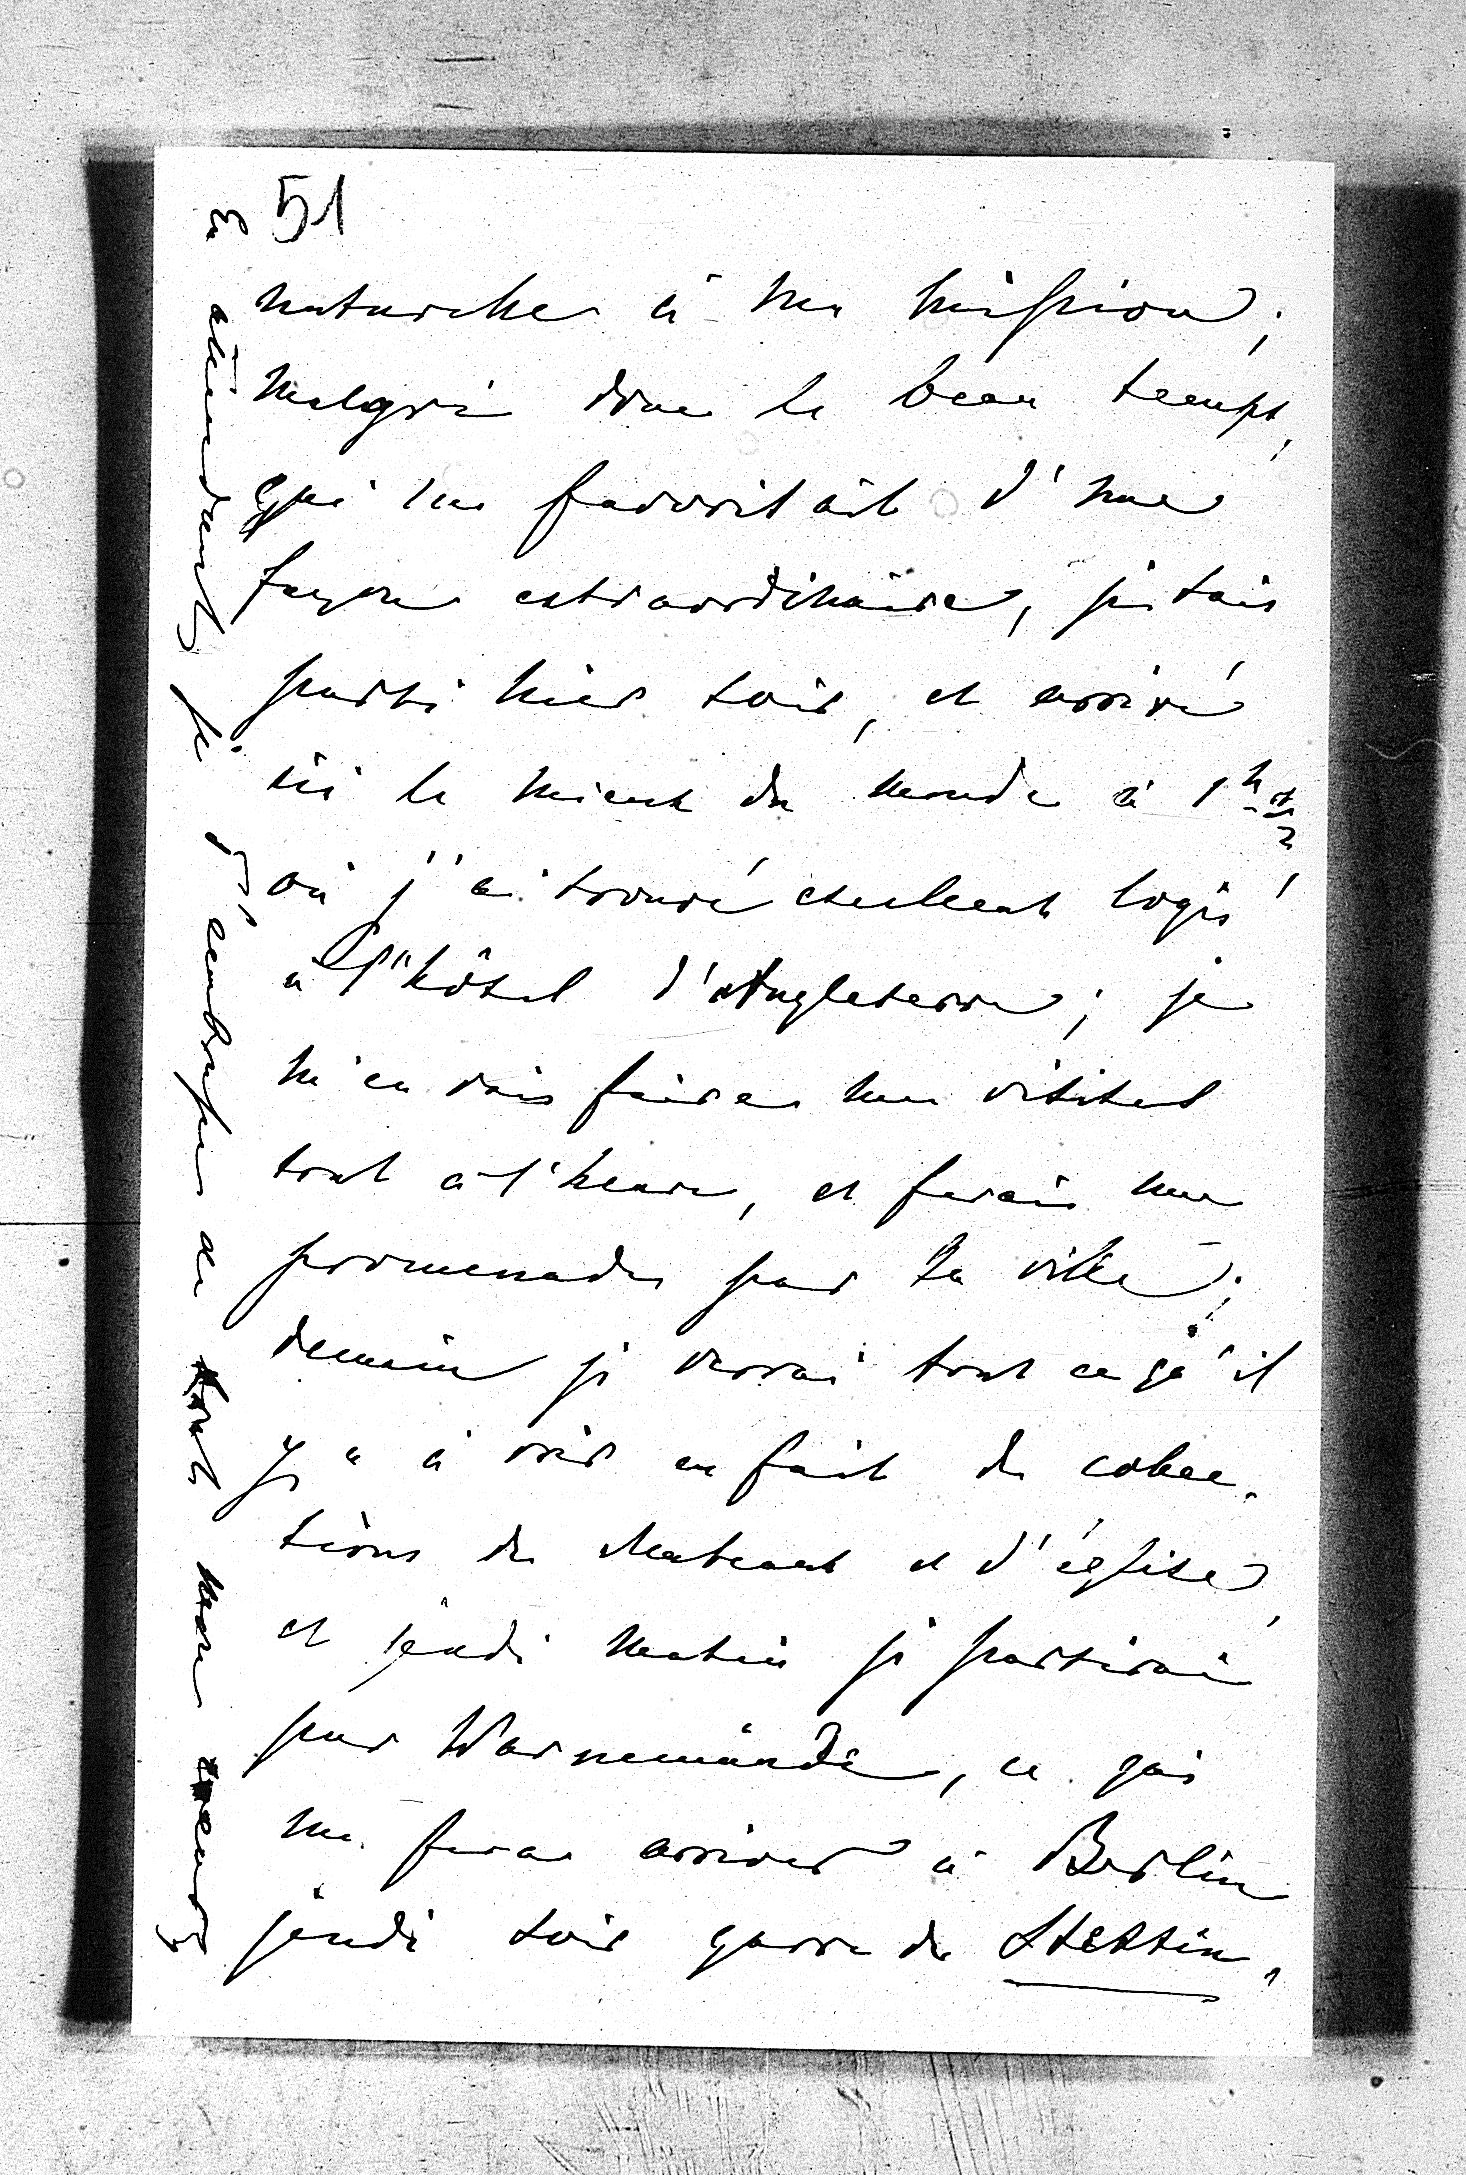 51
naturelles à ma mission;
malgré donc le beau temps,
qui me favorisait d'une
façon extraordinaire, j'étais
parti hier soir, et arrivé
ici le mieux du monde à 1h 1/2
où j'ai trouvé excellent logis
à l'hôtel d'Angleterre; je
m'en vais faire ma visite
tout à l'heure, et ferai une
promenade par la ville;
demain je verrai tout ce qu'il
y a à voir en fait de collec-
tions de chateaux et d'églises,
et jeudi matin je partirai
pour Warnemünde, ce qui
me fera arriver à Berlin
jeudi soir garre de Stettin.
En attendant je t'embrasse de tout mon coeur